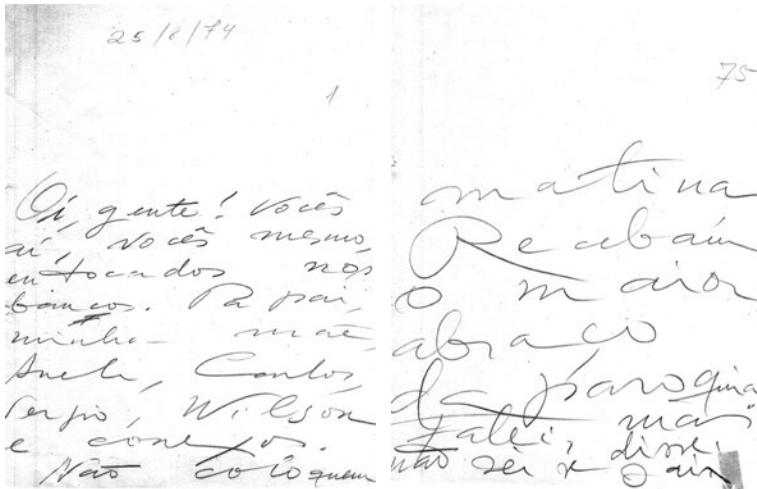 25/8/74
1
Oi, gente! Vocês
aí, vocês mesmo,
entocados nos
bancos. Papai,
minha mãe,
Carlos,
Sergio, Wilson
e conexos.
Não coloquem
75
matina
Recebam
o maior
abraço
da
Falei, mas
não sei se